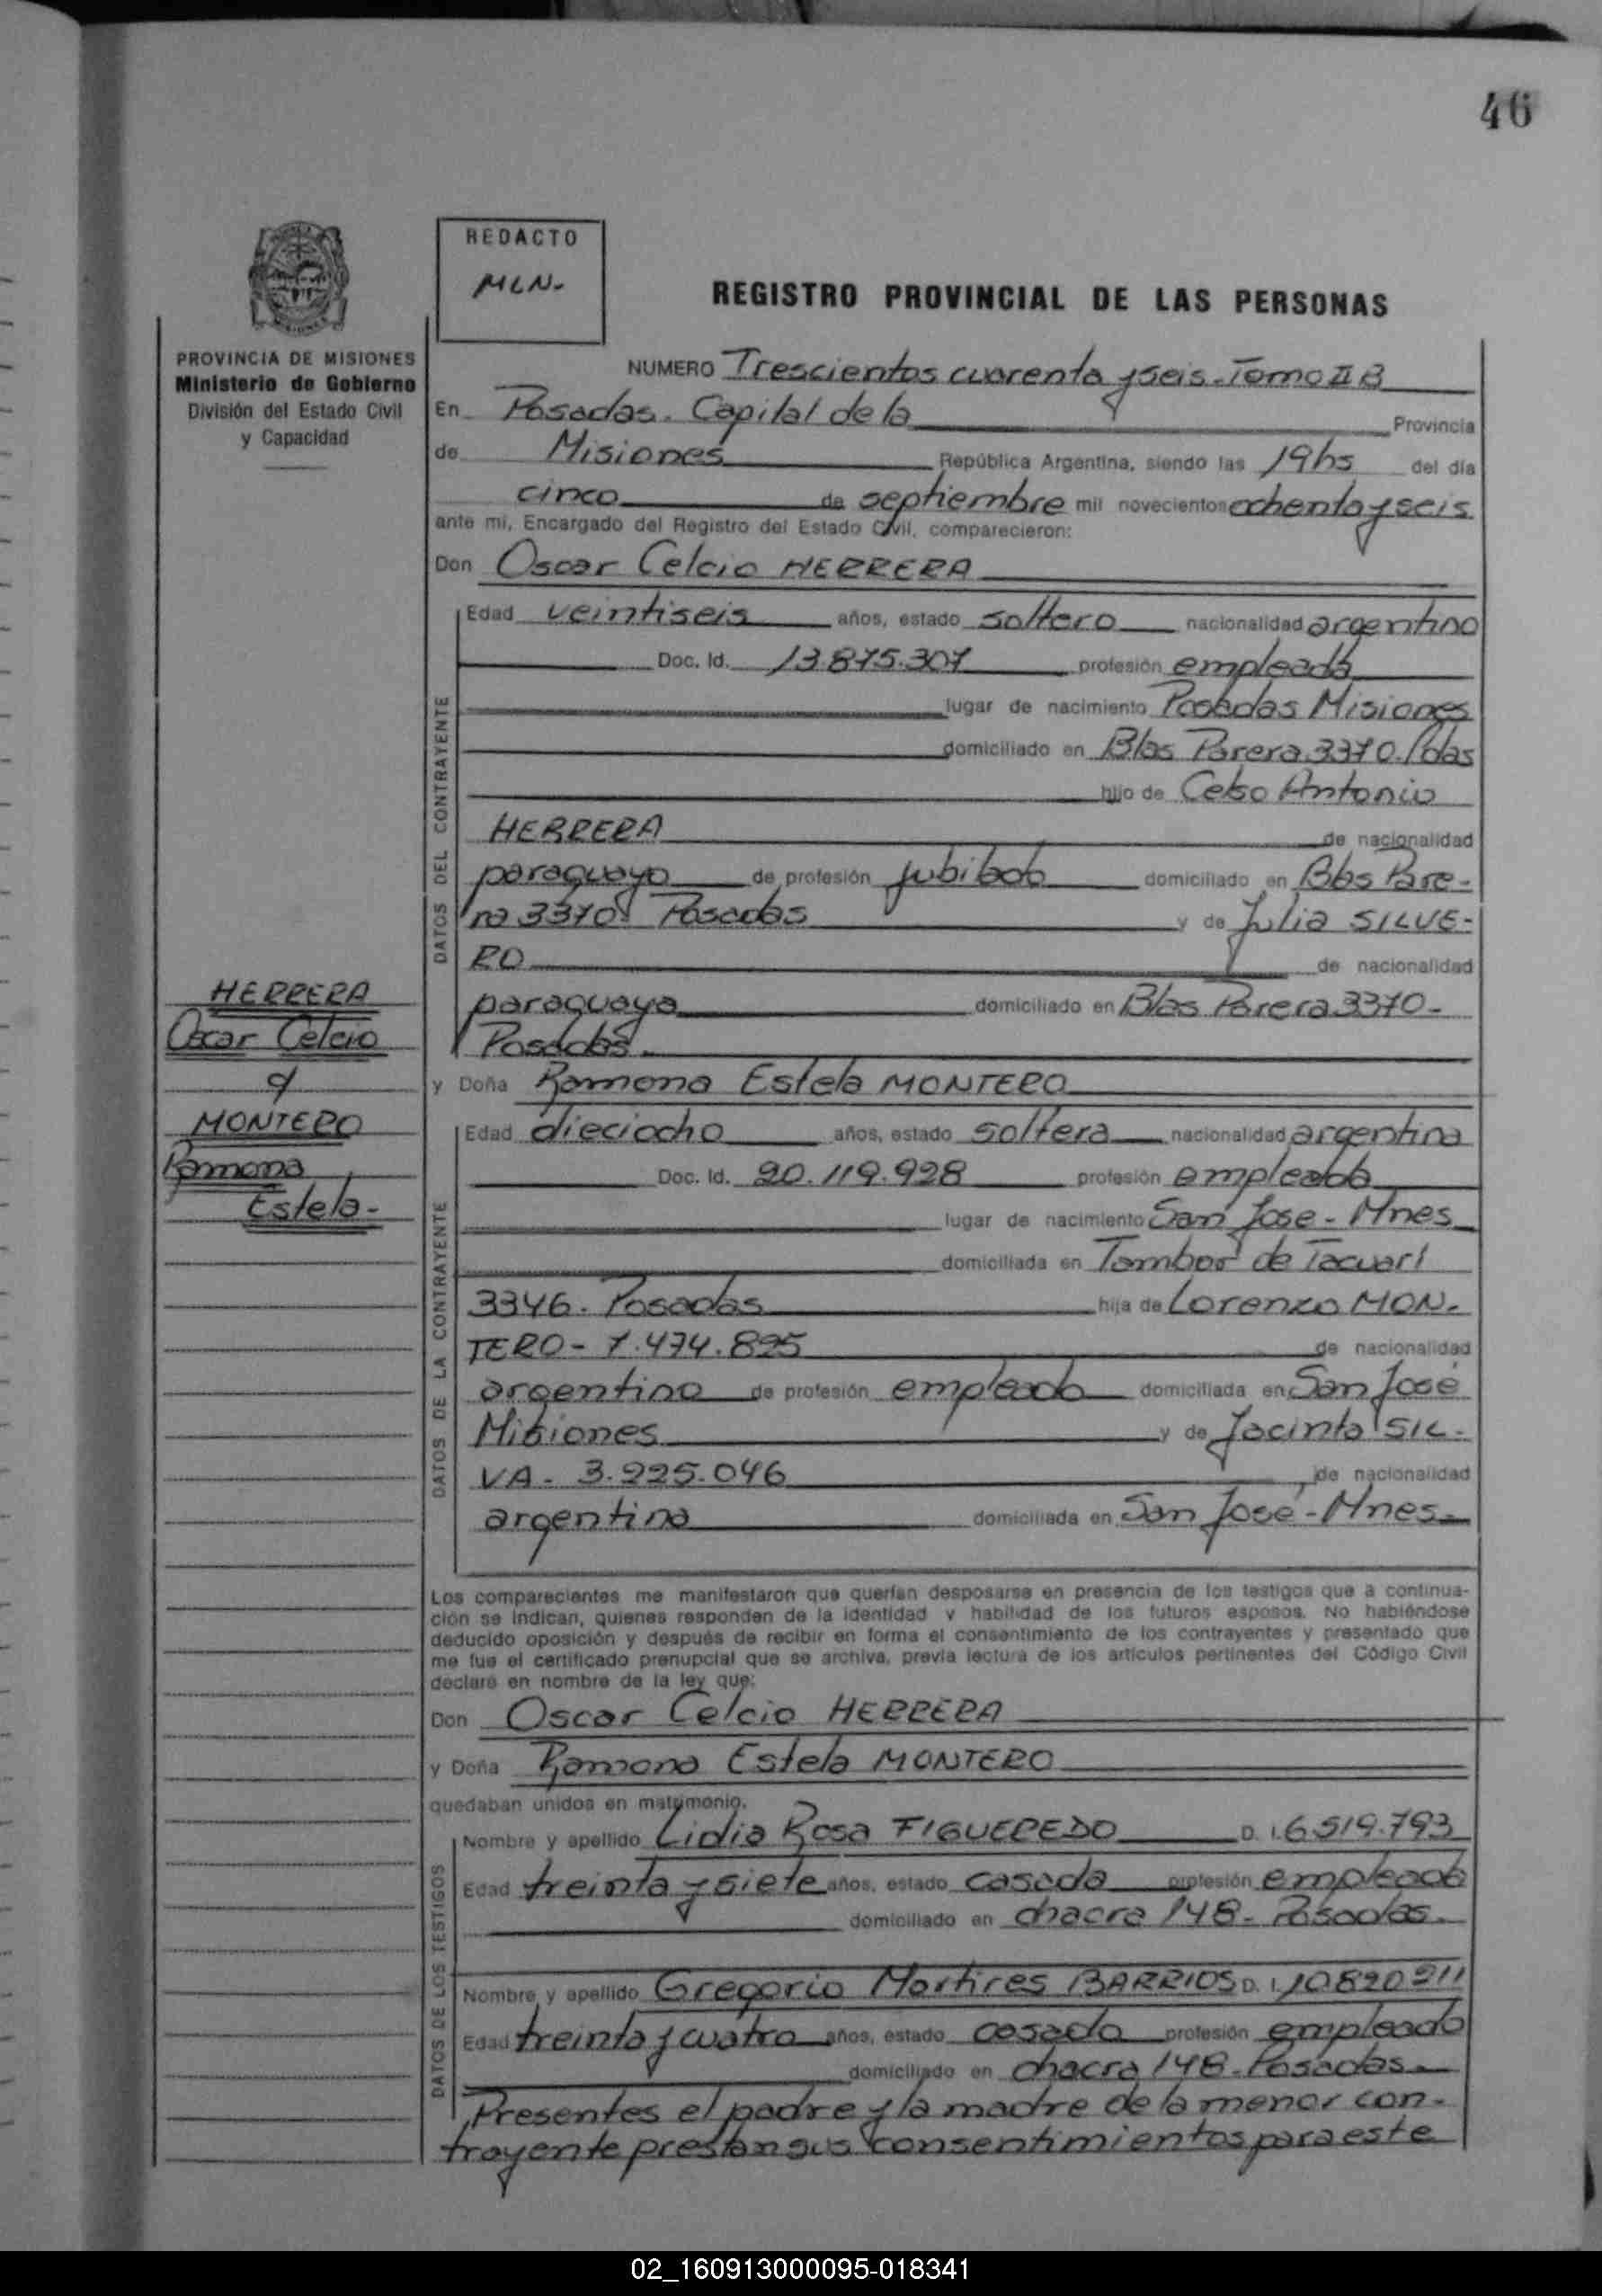 46
REDACTO
MLN.
REGISTRO PROVINCIAL DE LAS PERSONAS
PROVINCIA DE MISIONES
Ministerio de Gobierno
División del Estado Civil
y Capacidad
NUMERO Trescientos cuarenta y seis. Tomo II B
En Posadas. Capital de la Provincia
de Misiones República Argentina, siendo las 19hs del día
cinco de septiembre mil novecientos ochenta y seis
ante mí, Encargado del Registro del Estado Civil, comparecieron:
Don Oscar Celcio HERRERA
DATOS DEL CONTRAYENTE
Edad veintiseis años, estado soltero nacionalidad argentino
Doc. Id. 13.875.307 profesión empleado
lugar de nacimiento Posadas Misiones
domiciliado en Blas Parera 3370. Pdas
hijo de Celso Antonio
HERRERA de nacionalidad
paraguayo de profesión jubilado domiciliado en Blas Pare-
ra 3370. Posadas y de Julia SILVE-
RO de nacionalidad
paraguaya domiciliado en Blas Parera 3370-
Posadas.
HERRERA
Oscar Celcio
y
MONTERO
Ramona
Estela-
y Doña Ramona Estela MONTERO
DATOS DE LA CONTRAYENTE
Edad dieciocho años, estado soltera nacionalidad argentina
Doc. Id. 20.119.928 profesión empleada
lugar de nacimiento San Jose - Mnes
domiciliada en Tambor de Tacuarí
3346. Posadas hija de Lorenzo MON-
TERO - 7.474.825 de nacionalidad
argentino de profesión empleado domiciliada en San José
Misiones y de Jacinta SIL-
VA - 3.225.046 de nacionalidad
argentina domiciliada en San José - Mnes-
Los comparecientes me manifestaron que querían desposarse en presencia de los testigos que a continua-
ción se indican, quienes responden de la identidad y habilidad de los futuros esposos. No habiéndose
deducido oposición y después de recibir en forma el consentimiento de los contrayentes y presentado que
me fue el certificado prenupcial que se archiva, previa lectura de los artículos pertinentes del Código Civil
declaré en nombre de la ley que:
Don Oscar Celcio HERRERA
y Doña Ramona Estela MONTERO
quedaban unidos en matrimonio.
DATOS DE LOS TESTIGOS
Nombre y apellido Lidia Rosa FIGUEREDO D. I. 6519.793
Edad treinta y siete años, estado casada profesión empleada
domiciliado en chacra 148 - Posadas.
Nombre y apellido Gregorio Martires BARRIOS D. I. 10820211
Edad treinta y cuatro años, estado casado profesión empleado
domiciliado en chacra 148 - Posadas-
Presentes el padre y la madre de la menor con-
trayente prestan sus consentimientos para este
02_160913000095-018341